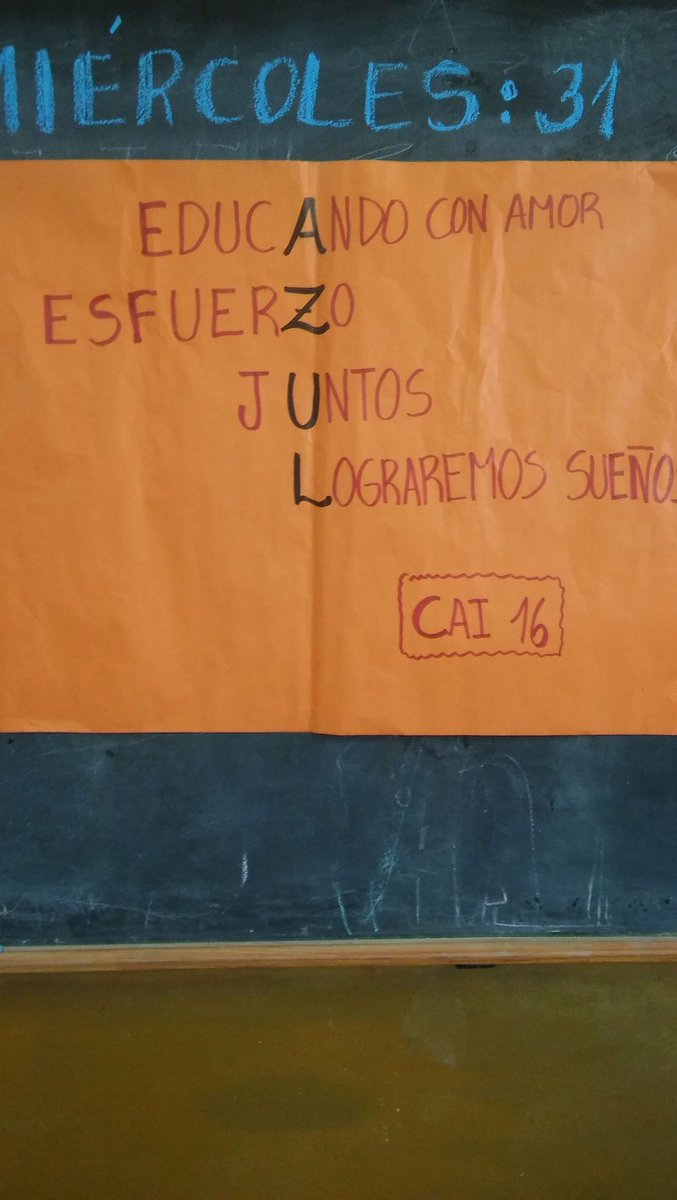 MIÉRCOLES: 31
EDUCANDO CON AMOR
ESFUERZO
JUNTOS
LOGRAREMOS SUEÑOS
CAI 16